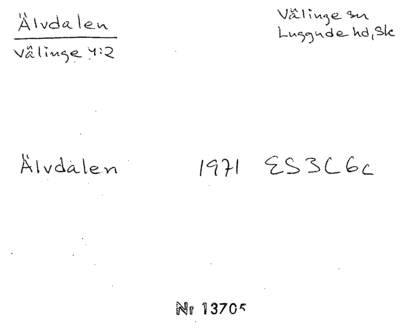 Älvdalen
Välinge 4:2
Välinge sn
Luggude hd, Sk
Älvdalen 1971 ES3C6c
Nr 13705